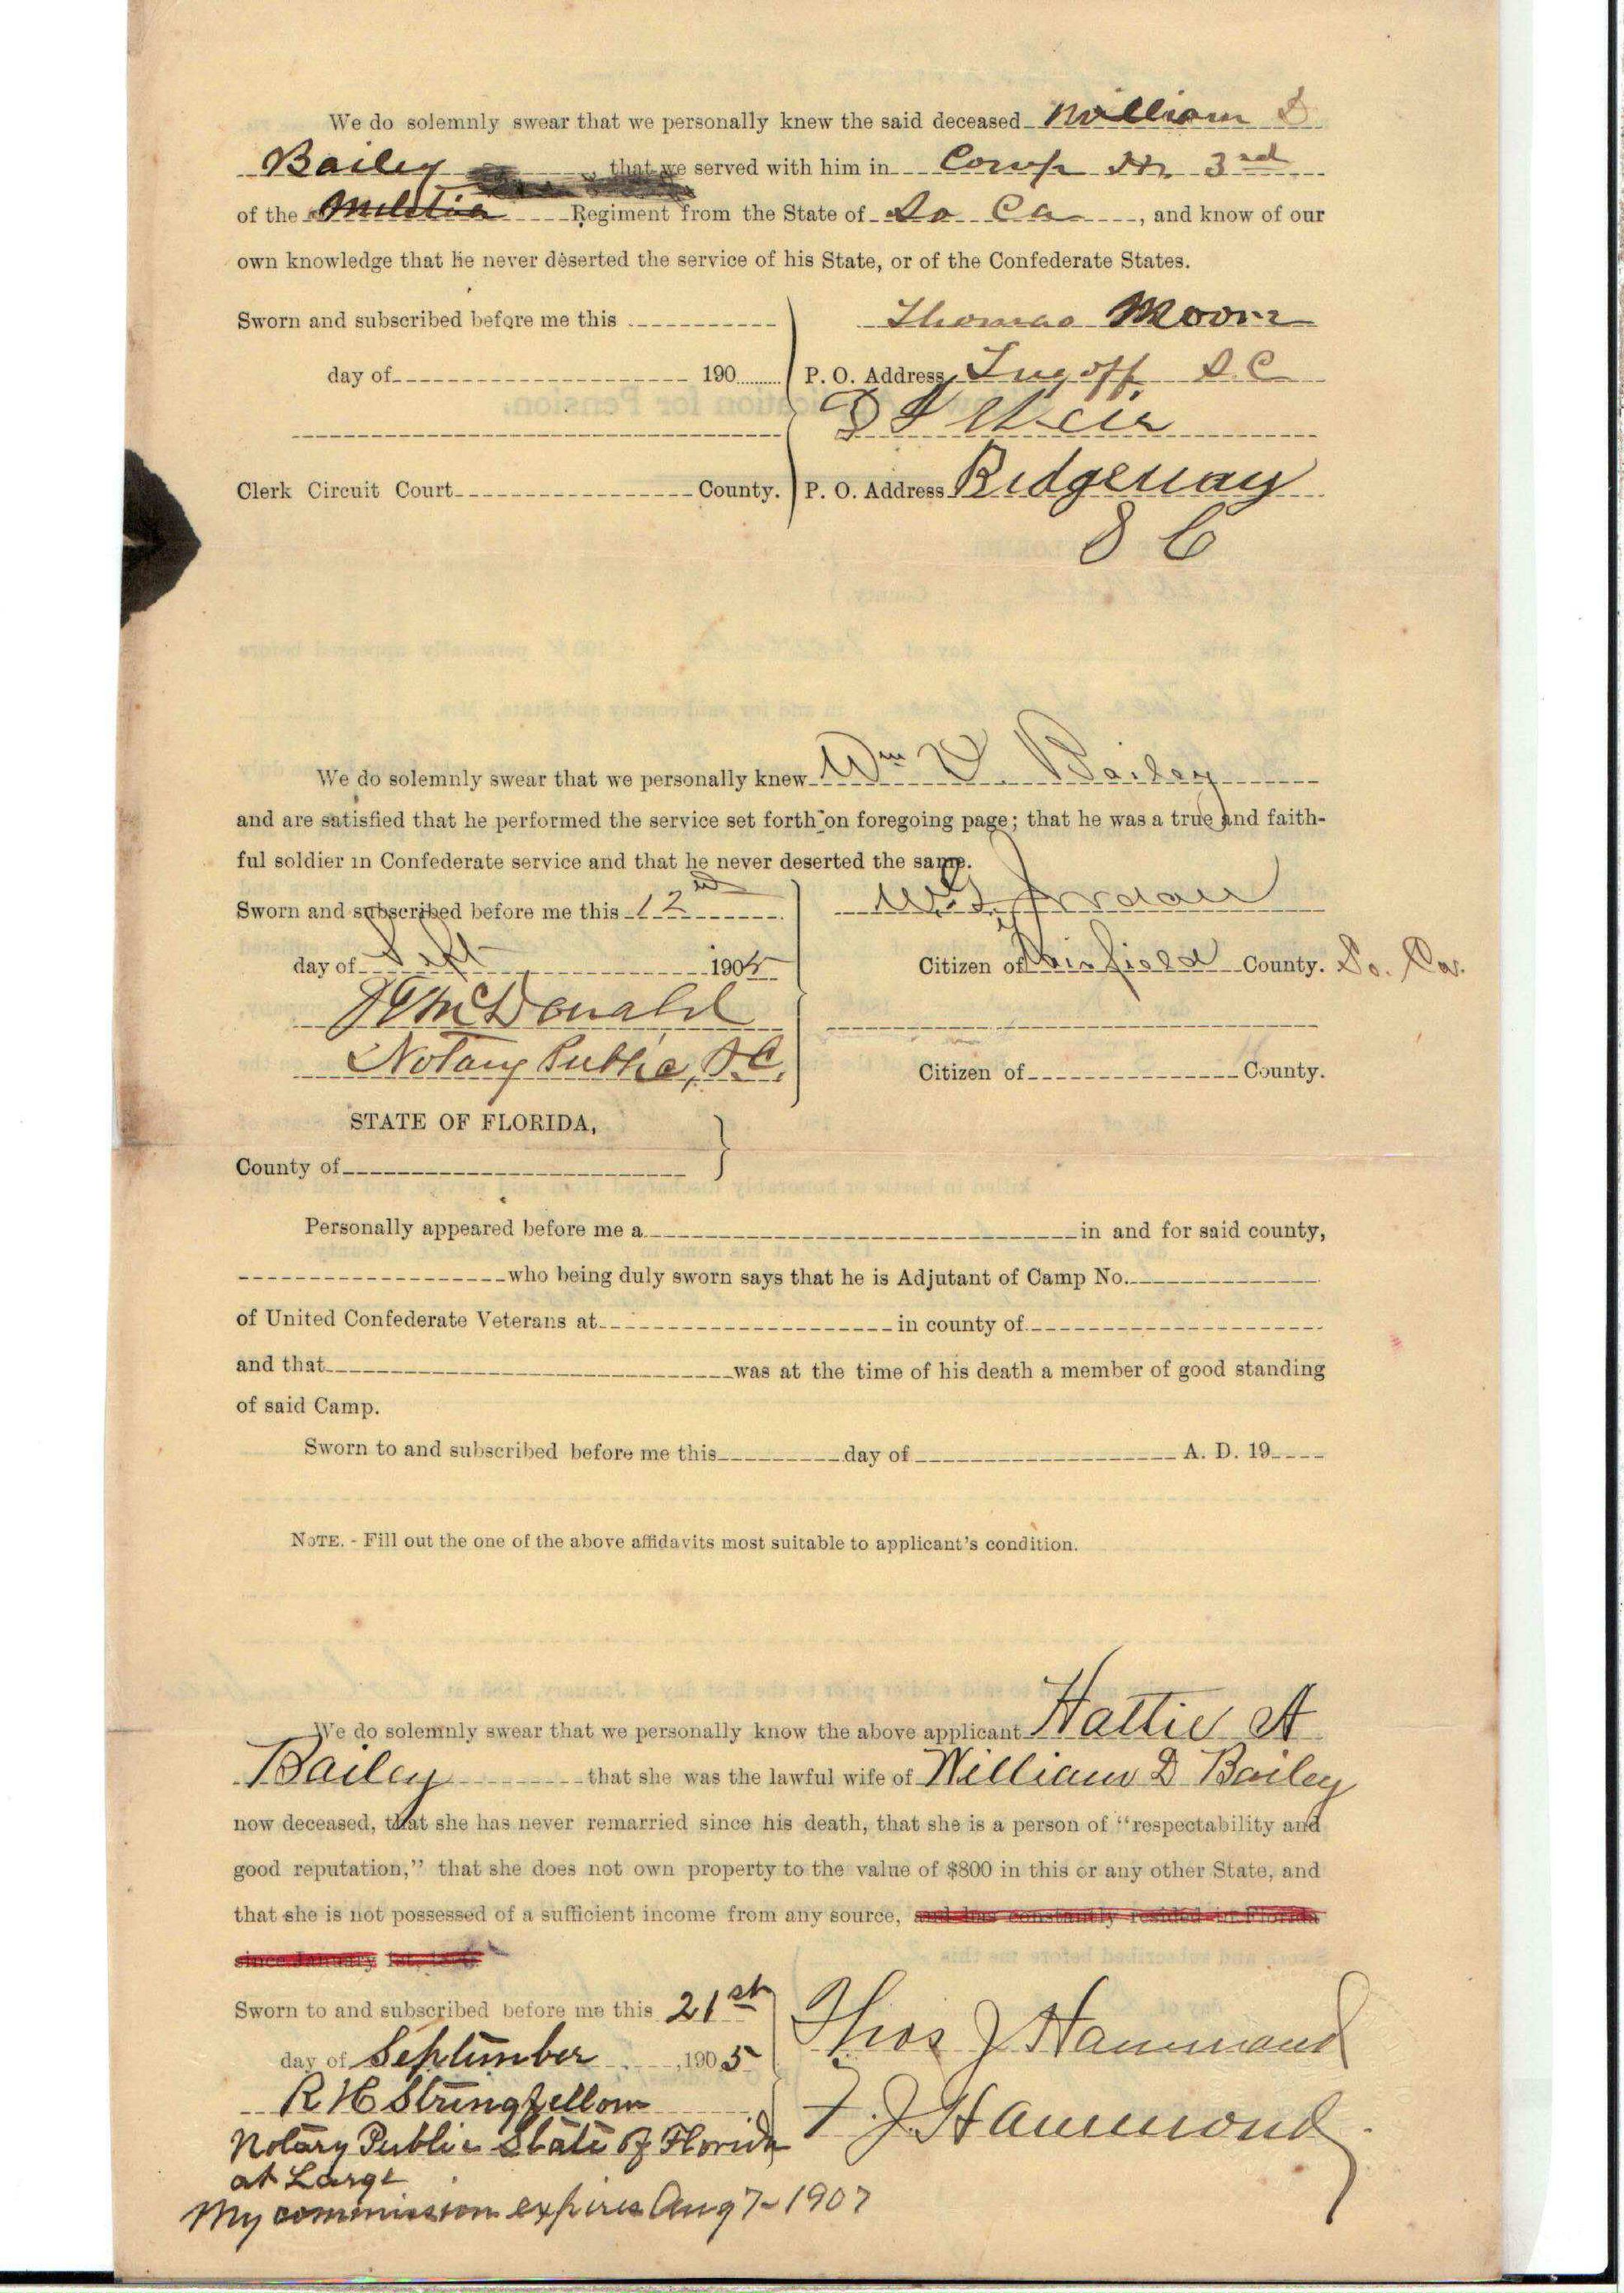 We do solemnly swear that we personally knew the said deceased William D
Bailey that we served with him in Comp H. 3rd
of the Militia Regiment from the State of So Ca, and know of our
own knowledge that he never deserted the service of his State, or of the Confederate States.
Sworn and subscribed before me this Thomas Moore
day of 190 P. O. Address, Lugoff S C
Weir
Clerk Circuit Court County. P. O. Address Ridgeway
S C
We do solemnly swear that we personally knew Wm D. Bailey
and are satisfied that he performed the service set forth on foregoing page; that he was a true and faith-
ful soldier in Confederate service and that he never deserted the same.
Sworn and subscribed before me this 12 Jordan
day of Sept 1905 Citizen of Fairfield County. So. Car.
McDonald
Notary Public, S.C. Citizen of County.
STATE OF FLORIDA,
County of
Personally appeared before me a in and for said county,
who being duly sworn says that he is Adjutant of Camp No.
of United Confederate Veterans at in county of
and that was at the time of his death a member of good standing
of said Camp.
Sworn to and subscribed before me this day of A. D. 19
NOTE. - Fill out the one of the above affidavits most suitable to applicant's condition.
We do solemnly swear that we personally know the above applicant Hattie A
Bailey that she was the lawful wife of William D Bailey
now deceased, that she has never remarried since his death, that she is a person of "respectability and
good reputation," that she does not own property to the value of $800 in this or any other State, and
that she is not possessed of a sufficient income from any source, and has constantly resided in Florida
since January 1st,
Sworn to and subscribed before me this 21st Thos J Hammond
day of September, 1905
R H Stringfellow F. J Hammond
Notary Public State of Florida
at Large
My commission expires Aug 7-1907